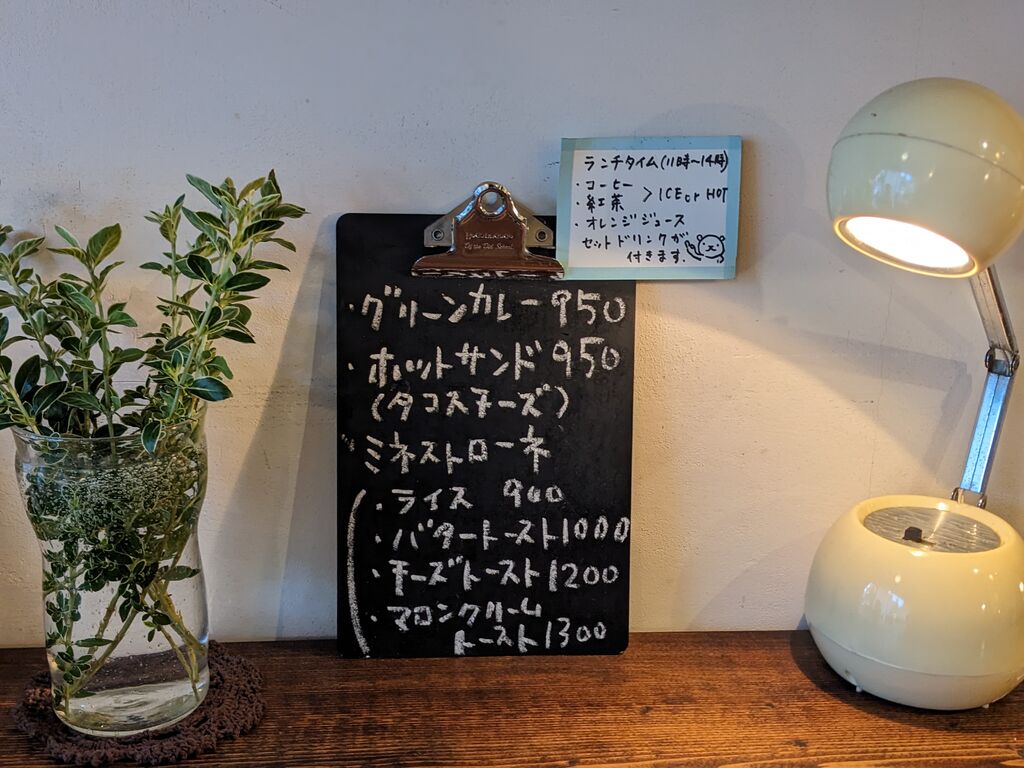 ランチタイム(11時〜14時)
・コーヒー
・紅茶 > ICE or HOT
・オレンジジュース
セットドリンクが
付きます。
・グリーンカレー 950
・ホットサンド 950
(タコスチーズ)
・ミネストローネ
・ライス 900
・バタートースト 1000
・チーズトースト 1200
・マロンクリーム
トースト 1300